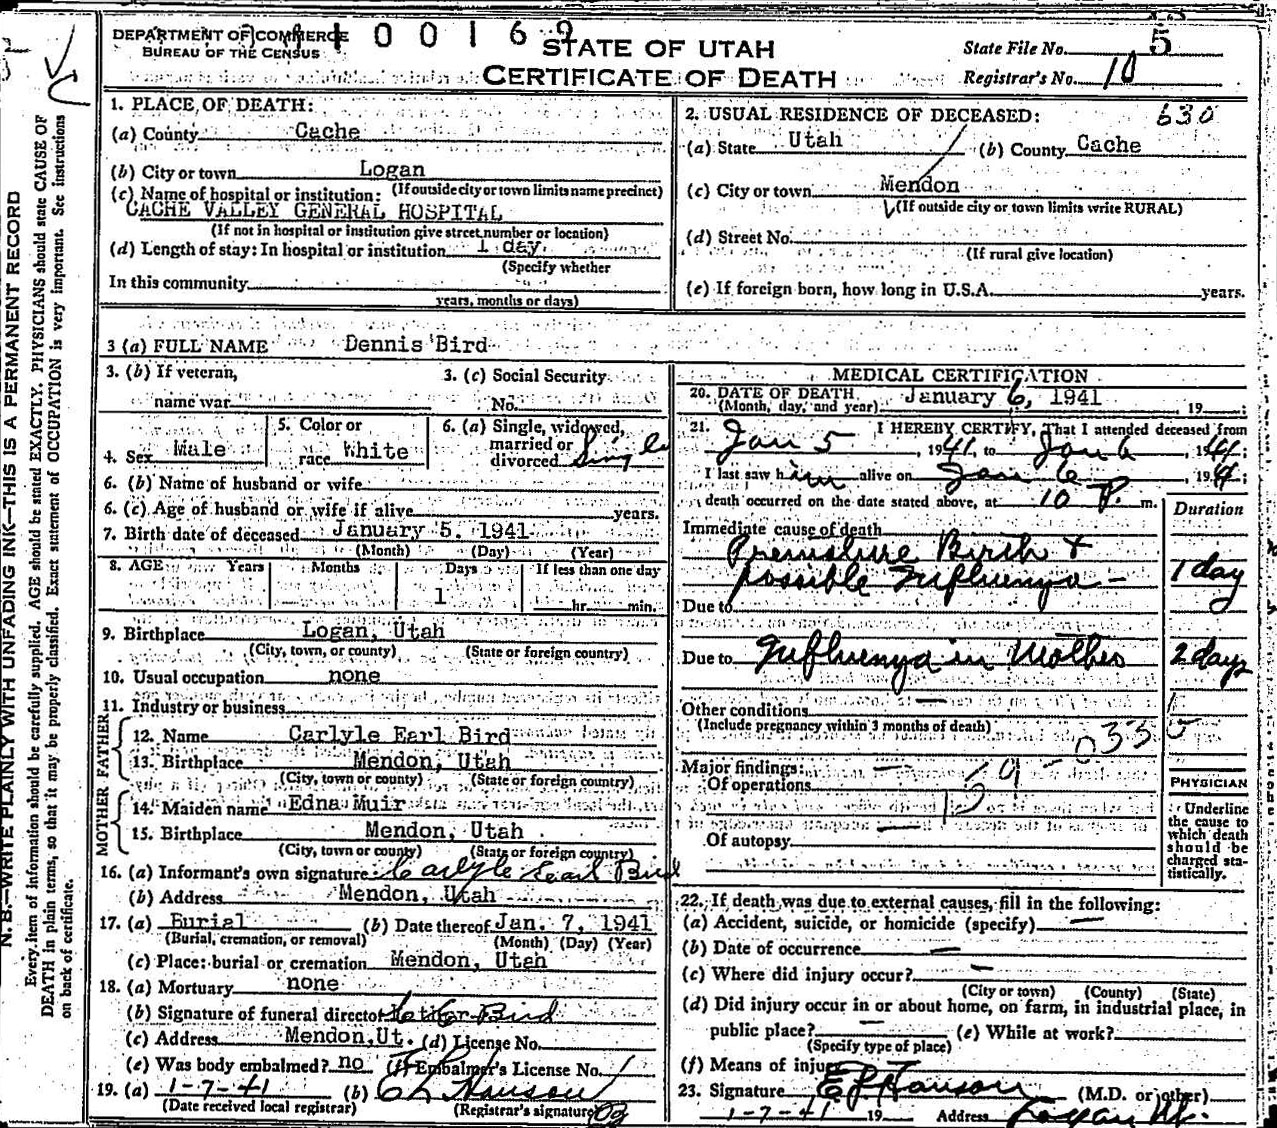 DEPARTMENT OF COMMERCE
BUREAU OF THE CENSUS
4100169
STATE OF UTAH
CERTIFICATE OF DEATH
State File No. 5
Registrar's No. 10
1. PLACE OF DEATH:
(a) County Cache
(b) City or town Logan
(c) Name of hospital or institution: (If outside city or town limits name precinct)
CACHE VALLEY GENERAL HOSPITAL
(If not in hospital or institution give street number or location)
(d) Length of stay: In hospital or institution 1 day
(Specify whether
In this community
years, months or days)
2. USUAL RESIDENCE OF DECEASED: 630
(a) State Utah (b) County Cache
(c) City or town Mendon
(If outside city or town limits write RURAL)
(d) Street No.
(If rural give location)
(e) If foreign born, how long in U.S.A. years.
3 (a) FULL NAME Dennis Bird
3. (b) If veteran, 3. (c) Social Security
name war No.
4. Sex Male
5. Color or
race White
6. (a) Single, widowed,
married or
divorced Single
6. (b) Name of husband or wife
6. (c) Age of husband or wife if alive years.
7. Birth date of deceased January 5, 1941
(Month) (Day) (Year)
8. AGE Years Months Days If less than one day
1 hr. min.
9. Birthplace Logan, Utah
(City, town, or county) (State or foreign country)
10. Usual occupation none
11. Industry or business
FATHER
12. Name Carlyle Earl Bird
13. Birthplace Mendon, Utah
(City, town or county) (State or foreign country)
MOTHER
14. Maiden name Edna Muir
15. Birthplace Mendon, Utah
(City, town or county) (State or foreign country)
16. (a) Informant's own signature Carlyle Earl Bird
(b) Address Mendon, Utah
17. (a) Burial (b) Date thereof Jan. 7, 1941
(Burial, cremation, or removal) (Month) (Day) (Year)
(c) Place: burial or cremation Mendon, Utah
18. (a) Mortuary none
(b) Signature of funeral director Bird
(c) Address Mendon, Ut. (d) License No.
(e) Was body embalmed? no (f) Embalmer's License No.
19. (a) 1-7-41 (b) Hanson
(Date received local registrar) (Registrar's signature)
MEDICAL CERTIFICATION
20. DATE OF DEATH
(Month, day, and year) January 6, 1941 19 ;
21. I HEREBY CERTIFY, That I attended deceased from
Jan 5, 1941, to Jan 6, 1941;
I last saw him alive on Jan 6, 194;
death occurred on the date stated above, at 10 P. m.
Duration
Immediate cause of death
Premature Birth +
possible Influenza - 1 day
Due to
Due to Influenza in Mother 2 days
Other conditions —
(Include pregnancy within 3 months of death)
Major findings: —
Of operations
159 - 0355
Of autopsy —
PHYSICIAN
Underline
the cause to
which death
should be
charged sta-
tistically.
22. If death was due to external causes, fill in the following:
(a) Accident, suicide, or homicide (specify) —
(b) Date of occurrence —
(c) Where did injury occur? —
(City or town) (County) (State)
(d) Did injury occur in or about home, on farm, in industrial place, in
public place? — (e) While at work?
(Specify type of place)
(f) Means of injury
23. Signature Hanson (M.D. or other)
1-7-41 19 Address Logan Ut.
N. B.—WRITE PLAINLY WITH UNFADING INK—THIS IS A PERMANENT RECORD
Every item of information should be carefully supplied. AGE should be stated EXACTLY. PHYSICIANS should state CAUSE OF
DEATH in plain terms, so that it may be properly classified. Exact statement of OCCUPATION is very important. See instructions
on back of certificate.